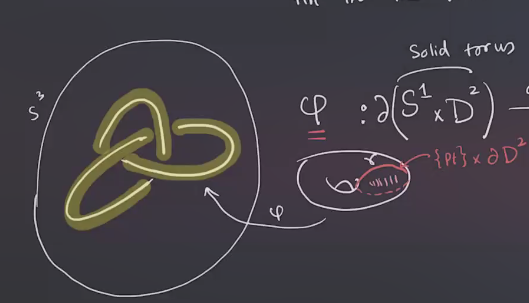 Solid torus
S³
φ : ∂(S¹ × D²)
{pt} × ∂D²
φ